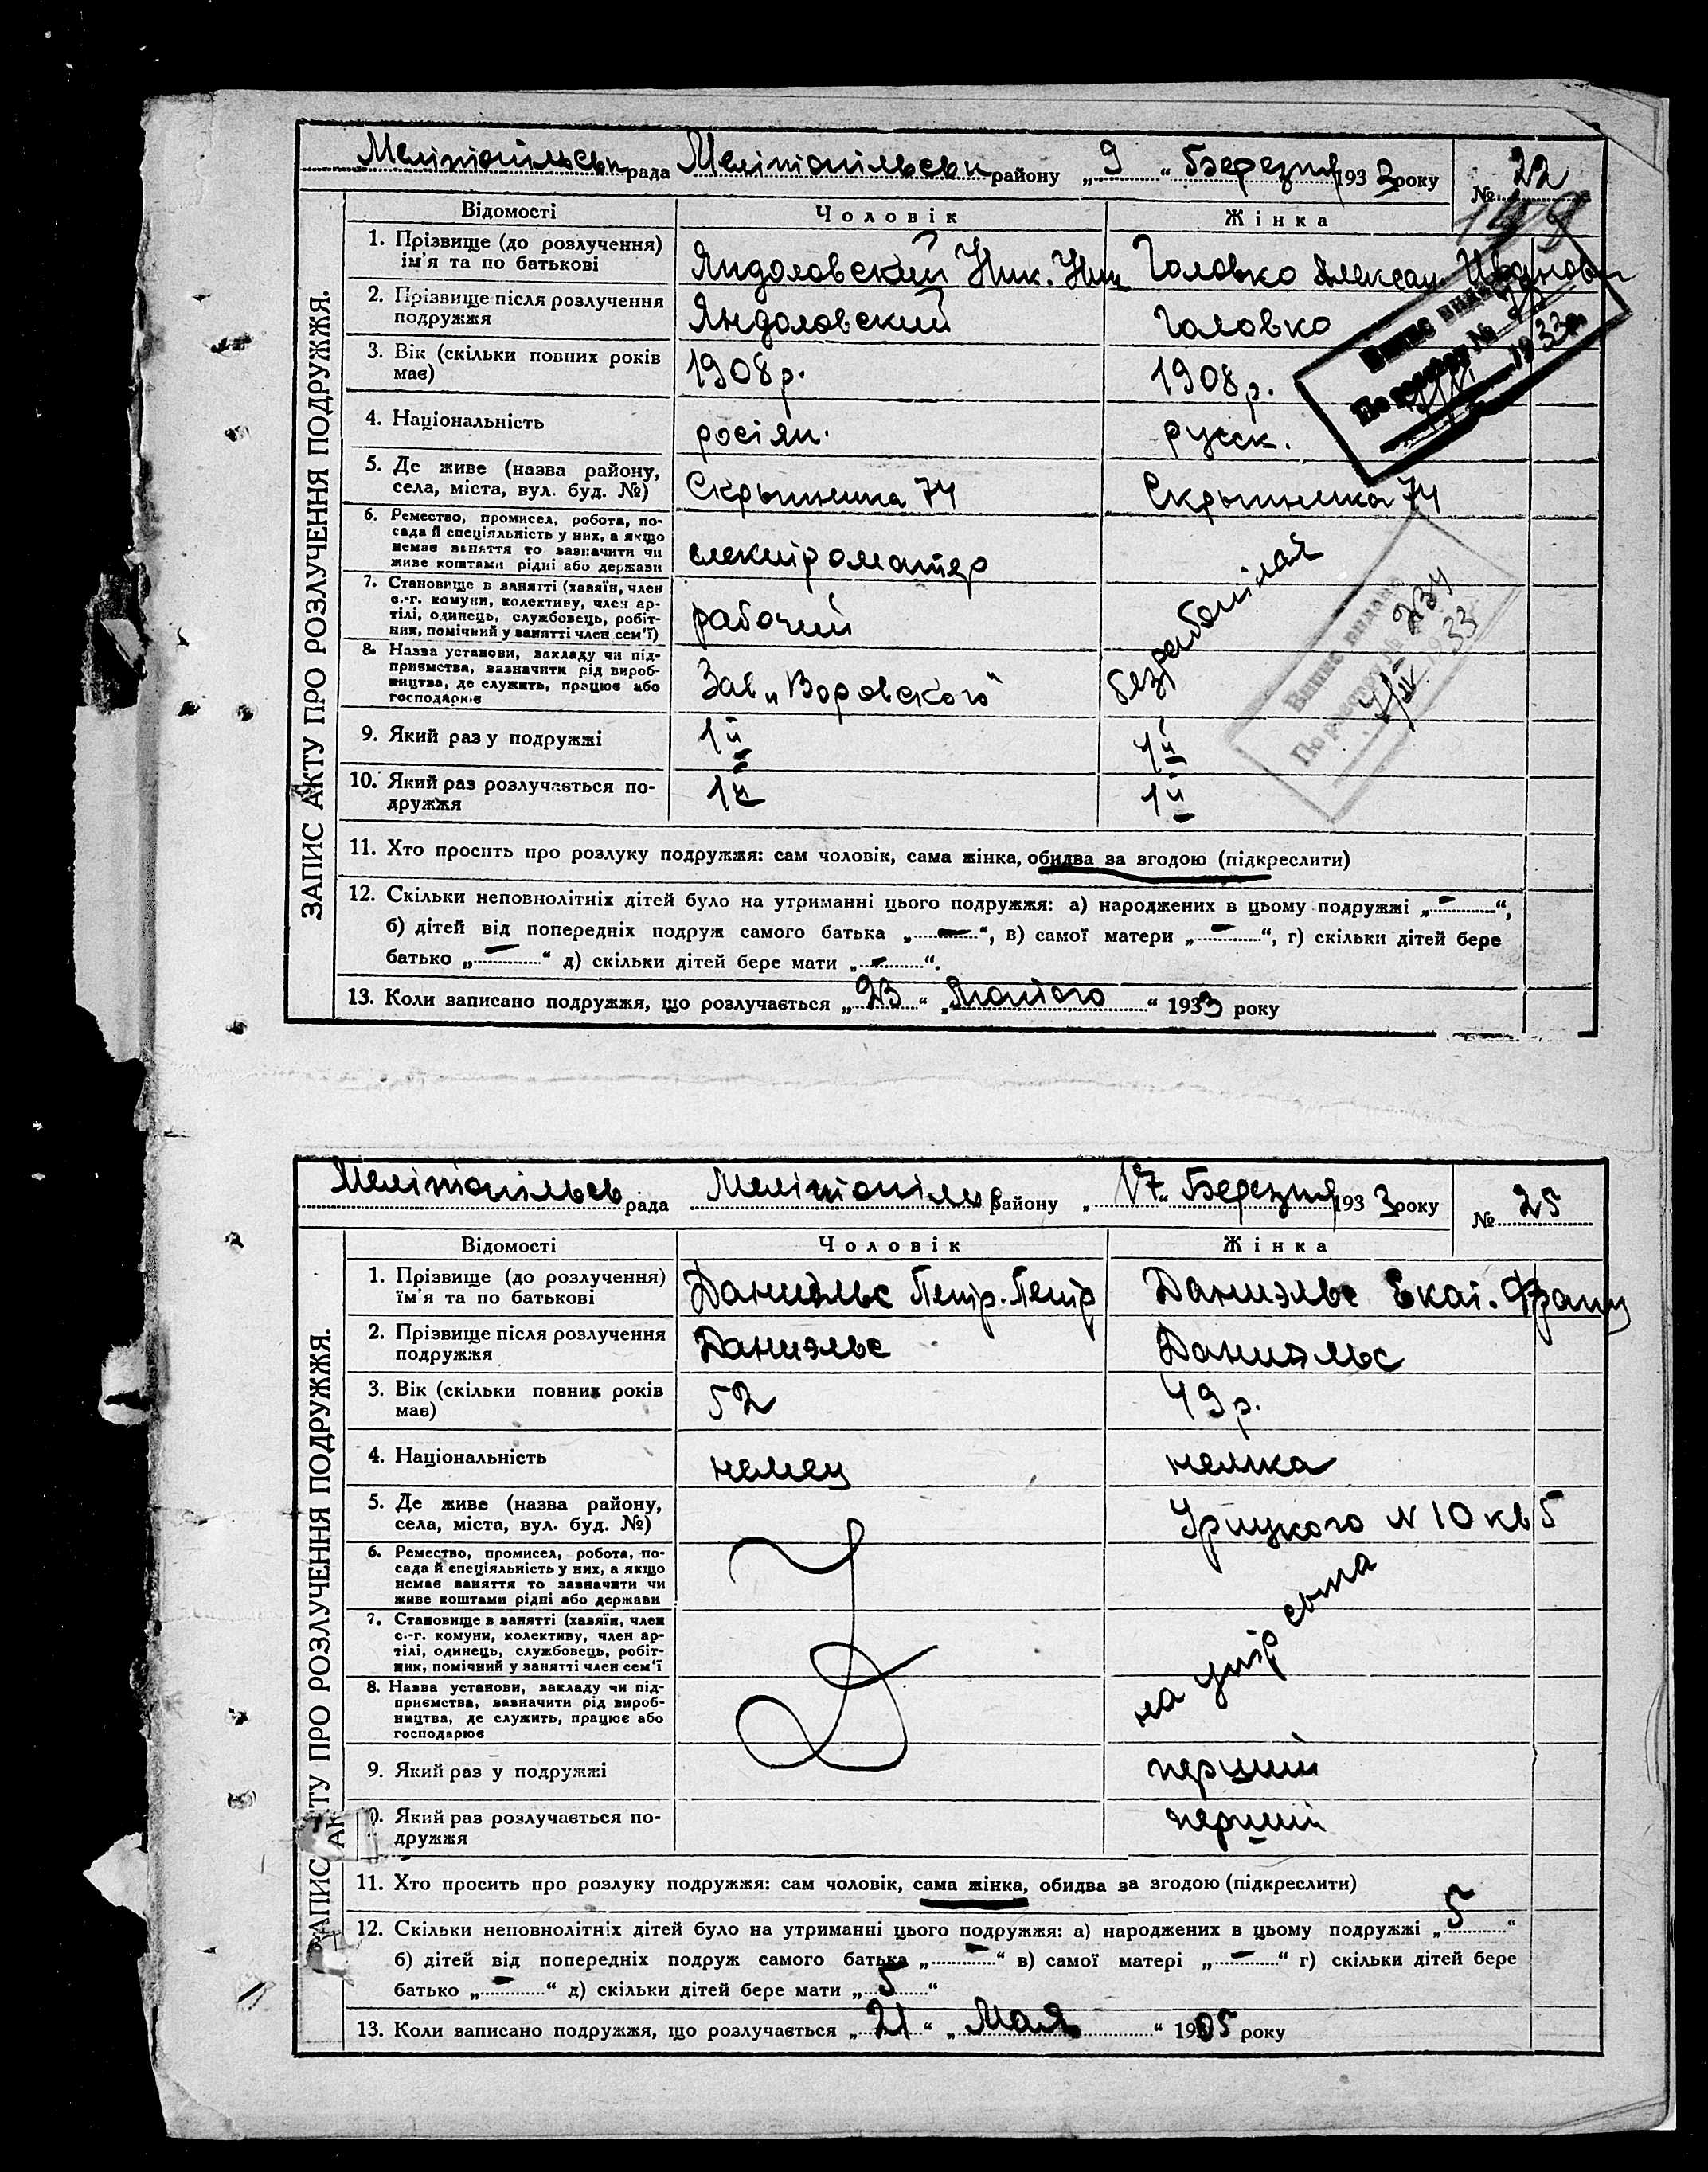 Мелітопільськ рада Мелітопільськ району „ 9 “ Березня 1933 року № 22
ЗАПИС АКТУ ПРО РОЗЛУЧЕННЯ ПОДРУЖЖЯ.
Відомості Чоловік Жінка
1. Прізвище (до розлучення) ім'я та по батькові Яндоловский Ник. Ник Головко Александ Иванов
2. Прізвище після розлучення подружжя Яндоловский Головко
3. Вік (скільки повних років має) 1908 р. 1908 р.
4. Національність росіян. русск.
5. Де живе (назва району, села, міста, вул. буд. №) Скрыпника 74 Скрыпника 74
6. Ремество, промисел, робота, по-
сада й спеціяльність у них, а якщо
немає заняття то зазначити чи
живе коштами рідні або держави електромонтер
7. Становище в занятті (хазяїн, член
с.-г. комуни, колективу, член ар-
тілі, одинець, службовець, робіт-
ник, помічний у занятті член сем'ї) рабочий
безработная
8. Назва установи, закладу чи під-
приємства, зазначити рід вироб-
ництва, де служить, працює або
господарює Зав „Воровского“
9. Який раз у подружжі 1й 1й
10. Який раз розлучається по-
дружжя 1й 1й
Випис видано
По реєстру №
1933
Випис видано
По реєстру № 234
1933
11. Хто просить про розлуку подружжя: сам чоловік, сама жінка, обидва за згодою (підкреслити)
12. Скільки неповнолітніх дітей було на утриманні цього подружжя: а) народжених в цьому подружжі „ — “,
б) дітей від попередніх подруж самого батька „ — “, в) самої матери „ — “, г) скільки дітей бере
батько „ — “ д) скільки дітей бере мати „ — “.
13. Коли записано подружжя, що розлучається „ 23 “ „ Лютого “ 1933 року
Мелітопільсь рада Мелітопільс району „ 17 “ Березня 1933 року № 25
ЗАПИС АКТУ ПРО РОЗЛУЧЕННЯ ПОДРУЖЖЯ.
Відомості Чоловік Жінка
1. Прізвище (до розлучення) їм'я та по батькові Даниэльс Петр. Петр Даниэльс Екат. Франц
2. Прізвище після розлучення подружжя Даниэльс Даниэльс
3. Вік (скільки повних років має) 52 49 р.
4. Національність немец немка
5. Де живе (назва району, села, міста, вул. буд. №) Урицкого N 10 кв 5
6. Ремество, промисел, робота, по-
сада й спеціяльність у них, а якщо
немає заняття то зазначити чи
живе коштами рідні або держави
7. Становище в занятті (хазяїн, член
с.-г. комуни, колективу, член ар-
тілі, одинець, службовець, робіт-
ник, помічний у занятті член сем'ї
8. Назва установи, закладу чи під-
приємства, зазначити рід вироб-
ництва, де служить, працює або
господарює
на утр сына
9. Який раз у подружжі перший
10. Який раз розлучається по-
дружжя перший
11. Хто просить про розлуку подружжя: сам чоловік, сама жінка, обидва за згодою (підкреслити)
12. Скільки неповнолітніх дітей було на утриманні цього подружжя: а) народжених в цьому подружжі „ 5 “
б) дітей від попередніх подруж самого батька „ — “ в) самої матері „ — “ г) скільки дітей бере
батько „ — “ д) скільки дітей бере мати „ 5 “
13. Коли записано подружжя, що розлучається „ 21 “ „ Мая “ 1905 року